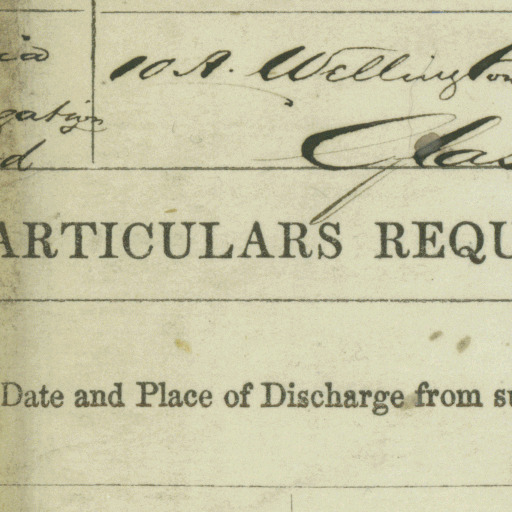 10 A. Wellington
Glas
ARTICULARS REQU
Date and Place of Discharge from su